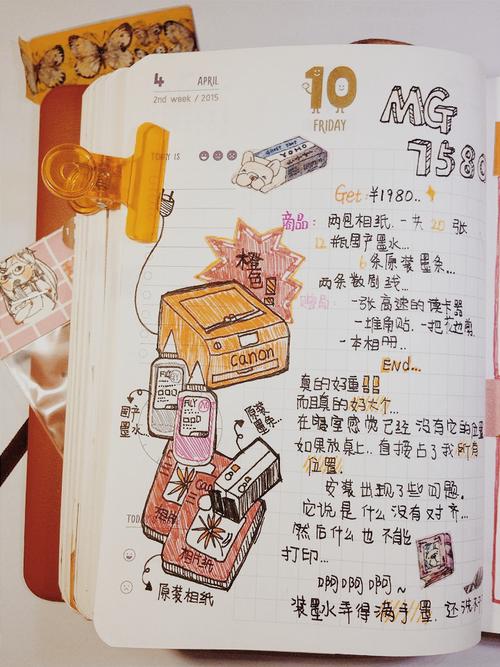 4 APRIL
2nd week / 2015
10
FRIDAY
MG
7580
TODAY IS
Get: ¥1980..
商品: 两包相纸. 一共 20 张
12 瓶国产墨水...
6 条原装墨条...
两条数剧线...
赠品: 一张高速的读卡器
一堆角贴. 一把花边剪
一本相册...
END...
真的好重!!
而且真的好大个...
在寝室感觉已经没有它的位置
如果放桌上.. 直接占了我所有
位置.
安装出现了些问题.
它说是什么没有对齐...
然后什么也不能
打印...
啊啊啊~
装墨水弄得满手墨. 还洗不
橙色
canon
国产
墨水...
原装
墨条...
相纸
相纸
TODAY
原装相纸